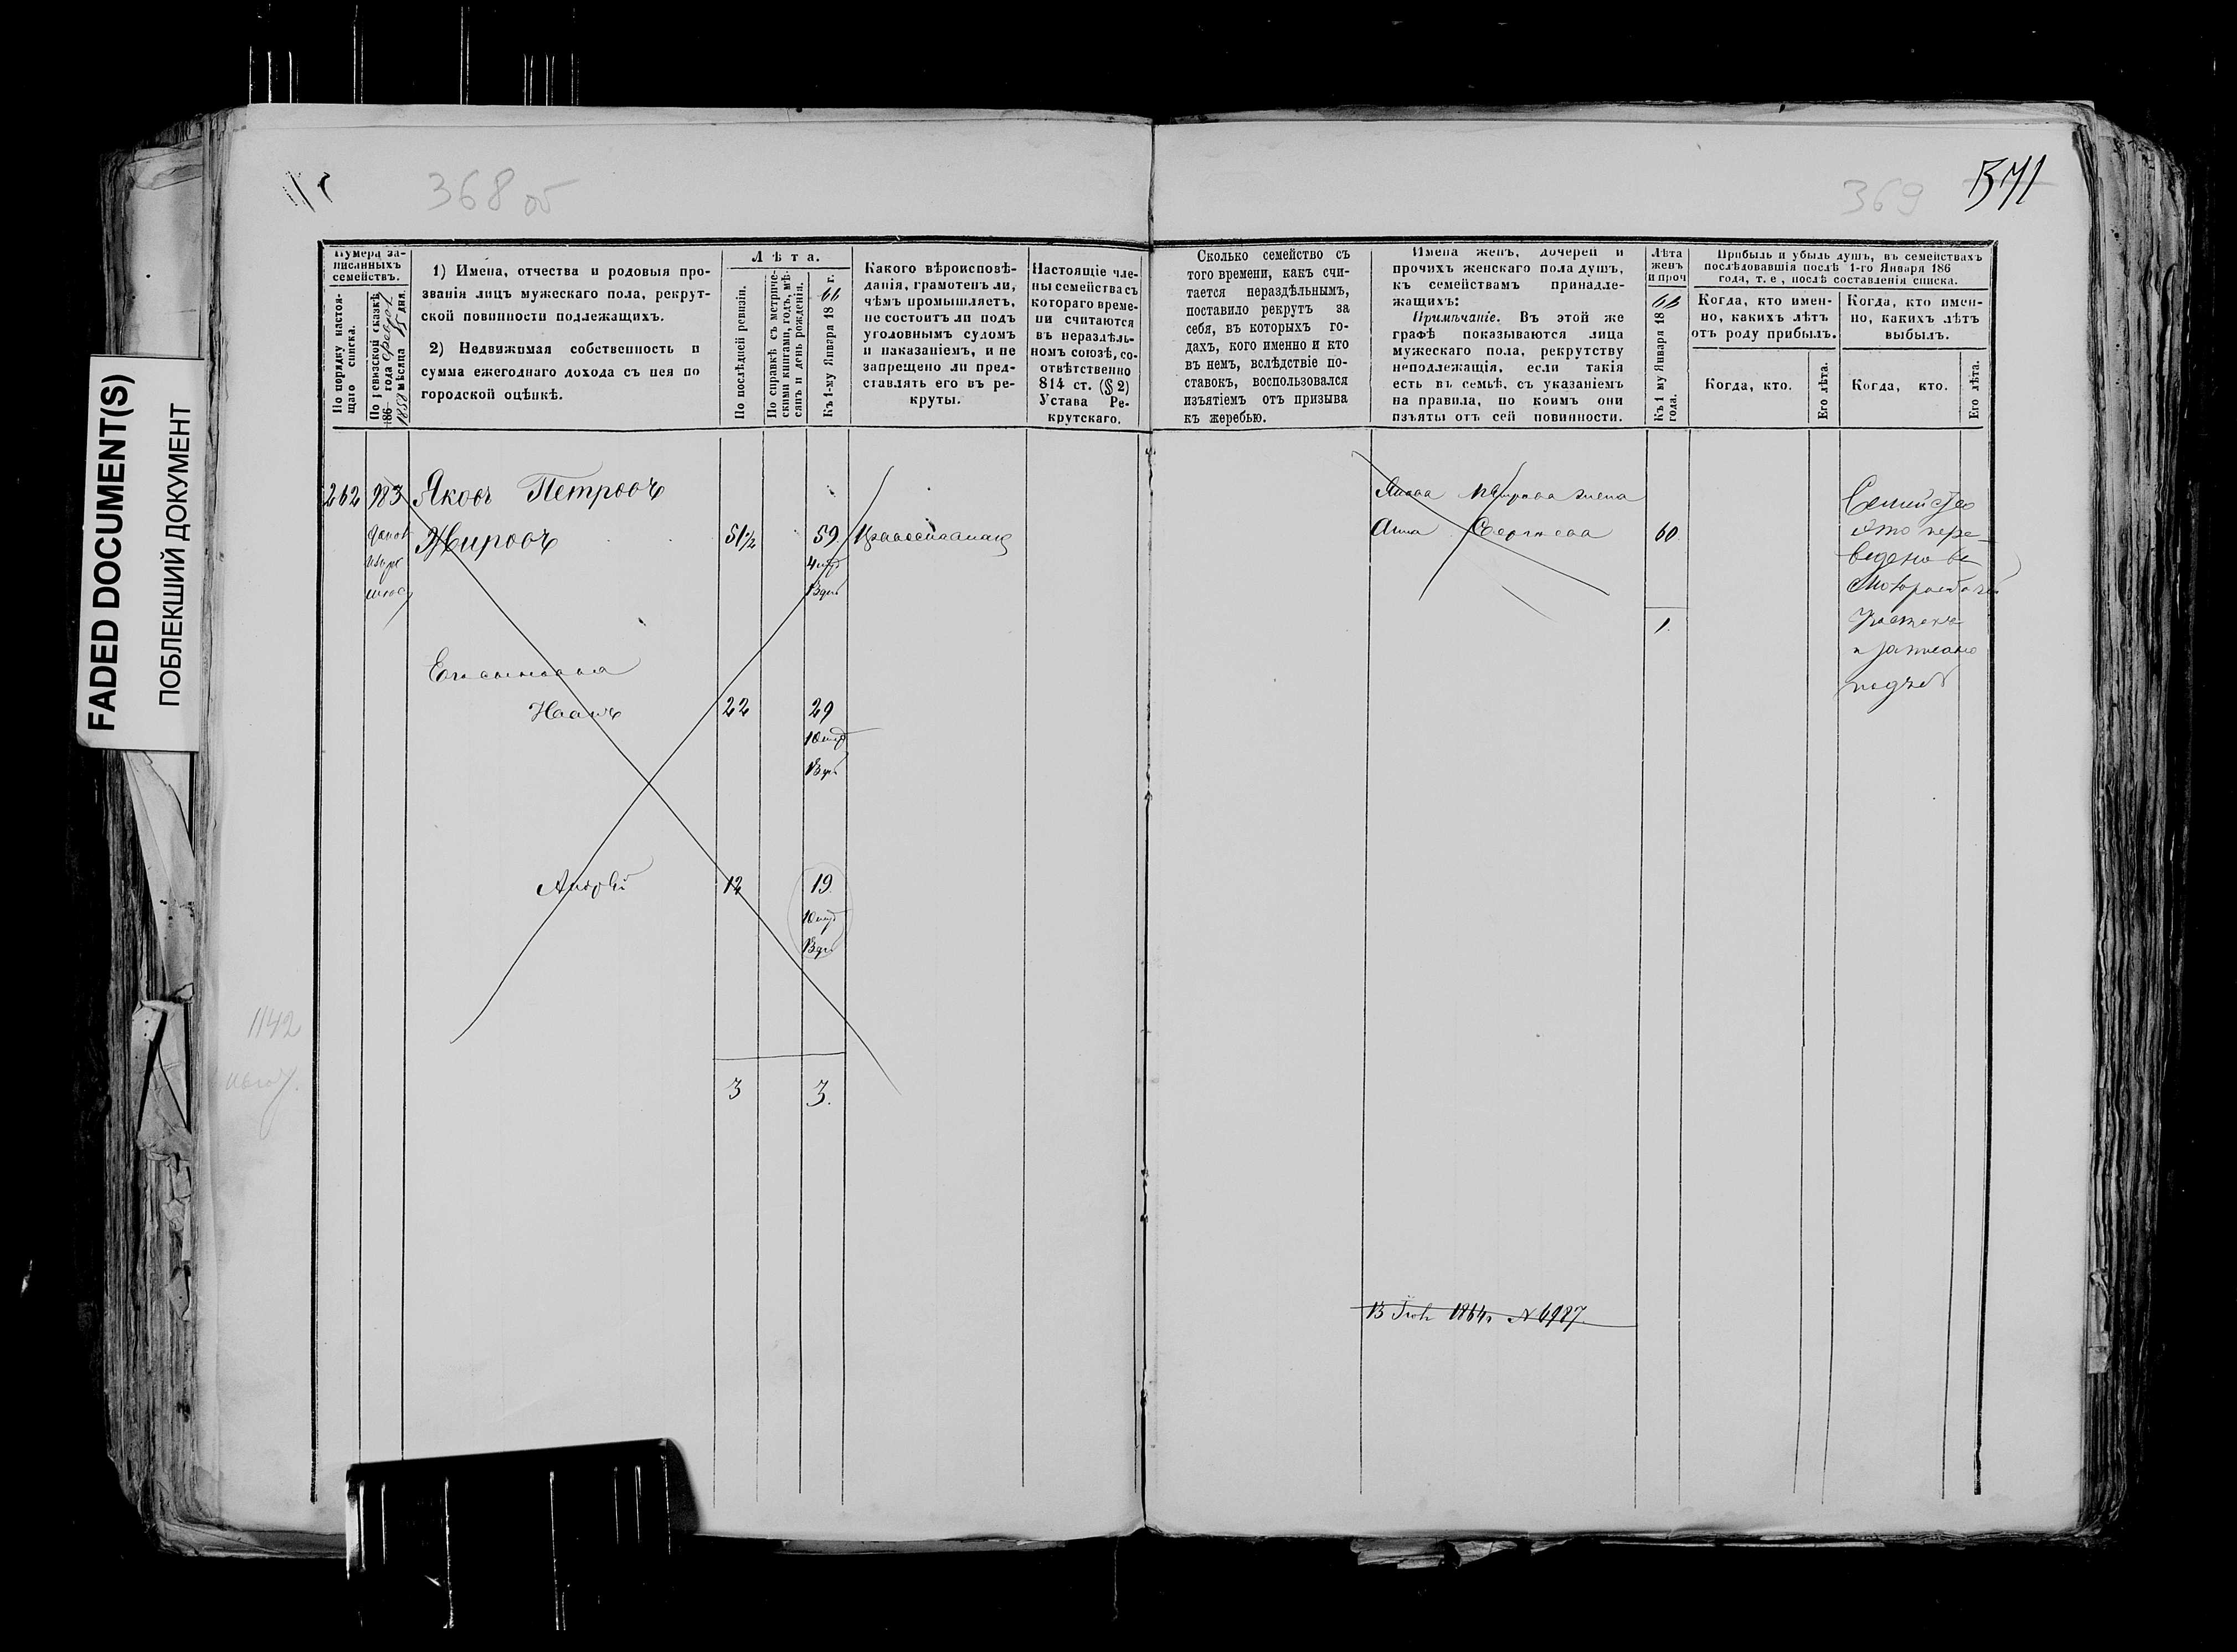 FADED DOCUMENT(S)
ПОБЛЕКШИЙ ДОКУМЕНТ
368 об
369
Нумера за-
писанныхъ
семействъ.
По порядку настоя-
щаго списка.
По ревизской сказкѣ
186 года
1858 мѣсяца 15 дня.
1) Имена, отчества и родовыя про-
званія лицъ мужескаго пола, рекрут-
ской повинности подлежащихъ.
2) Недвижимая собственность и
сумма ежегоднаго дохода съ нея по
городской оцѣнкѣ.
Лѣта.
По послѣдней ревизіи.
По справкѣ съ метриче-
скими книгами, годъ, мѣ-
сяцъ и день рожденія.
Къ 1-му Января 1866 г.
Какого вѣроисповѣ-
данія, грамотенъ ли,
чѣмъ промышляетъ,
не состоитъ ли подъ
уголовнымъ судомъ
и наказаніемъ, и не
запрещено ли пред-
ставлять его въ ре-
круты.
Настоящіе чле-
ны семейства съ
котораго време-
ни считаются
въ нераздѣль-
номъ союзѣ, со-
отвѣтственно
814 ст. (§ 2)
Устава Ре-
крутскаго.
Сколько семейство съ
того времени, какъ счи-
тается нераздѣльнымъ,
поставило рекрутъ за
себя, въ которыхъ го-
дахъ, кого именно и кто
въ немъ, вслѣдствіе по-
ставокъ, воспользовался
изъятіемъ отъ призыва
къ жеребью.
Имена женъ, дочерей и
прочихъ женскаго пола душъ,
къ семействамъ принадле-
жащихъ:
Примѣчаніе. Въ этой же
графѣ показываются лица
мужескаго пола, рекрутству
неподлежащія, если такія
есть въ семьѣ, съ указаніемъ
на правила, по коимъ они
изъяты отъ сей повинности.
Лѣта
женъ
и проч
Къ 1 му Января 1866
года.
Прибыль и убыль душъ, въ семействахъ
послѣдовавшія послѣ 1-го Января 186
года, т. е., послѣ составленія списка.
Когда, кто имен-
но, какихъ лѣтъ
отъ роду прибылъ.
Когда, кто имен-
но, какихъ лѣтъ
выбылъ.
Когда, кто.
Его лѣта.
Когда, кто.
Его лѣта.
262 983 Яковъ Петровъ
Жировъ 51½ 59
Его сыновья
Иванъ 22 29
Андрей 12 19
3 3.
1142
Якова Жирова жена
Анна 60.
1.
Семейство
это пере-
ведено въ
и записано
1864 № 6987.